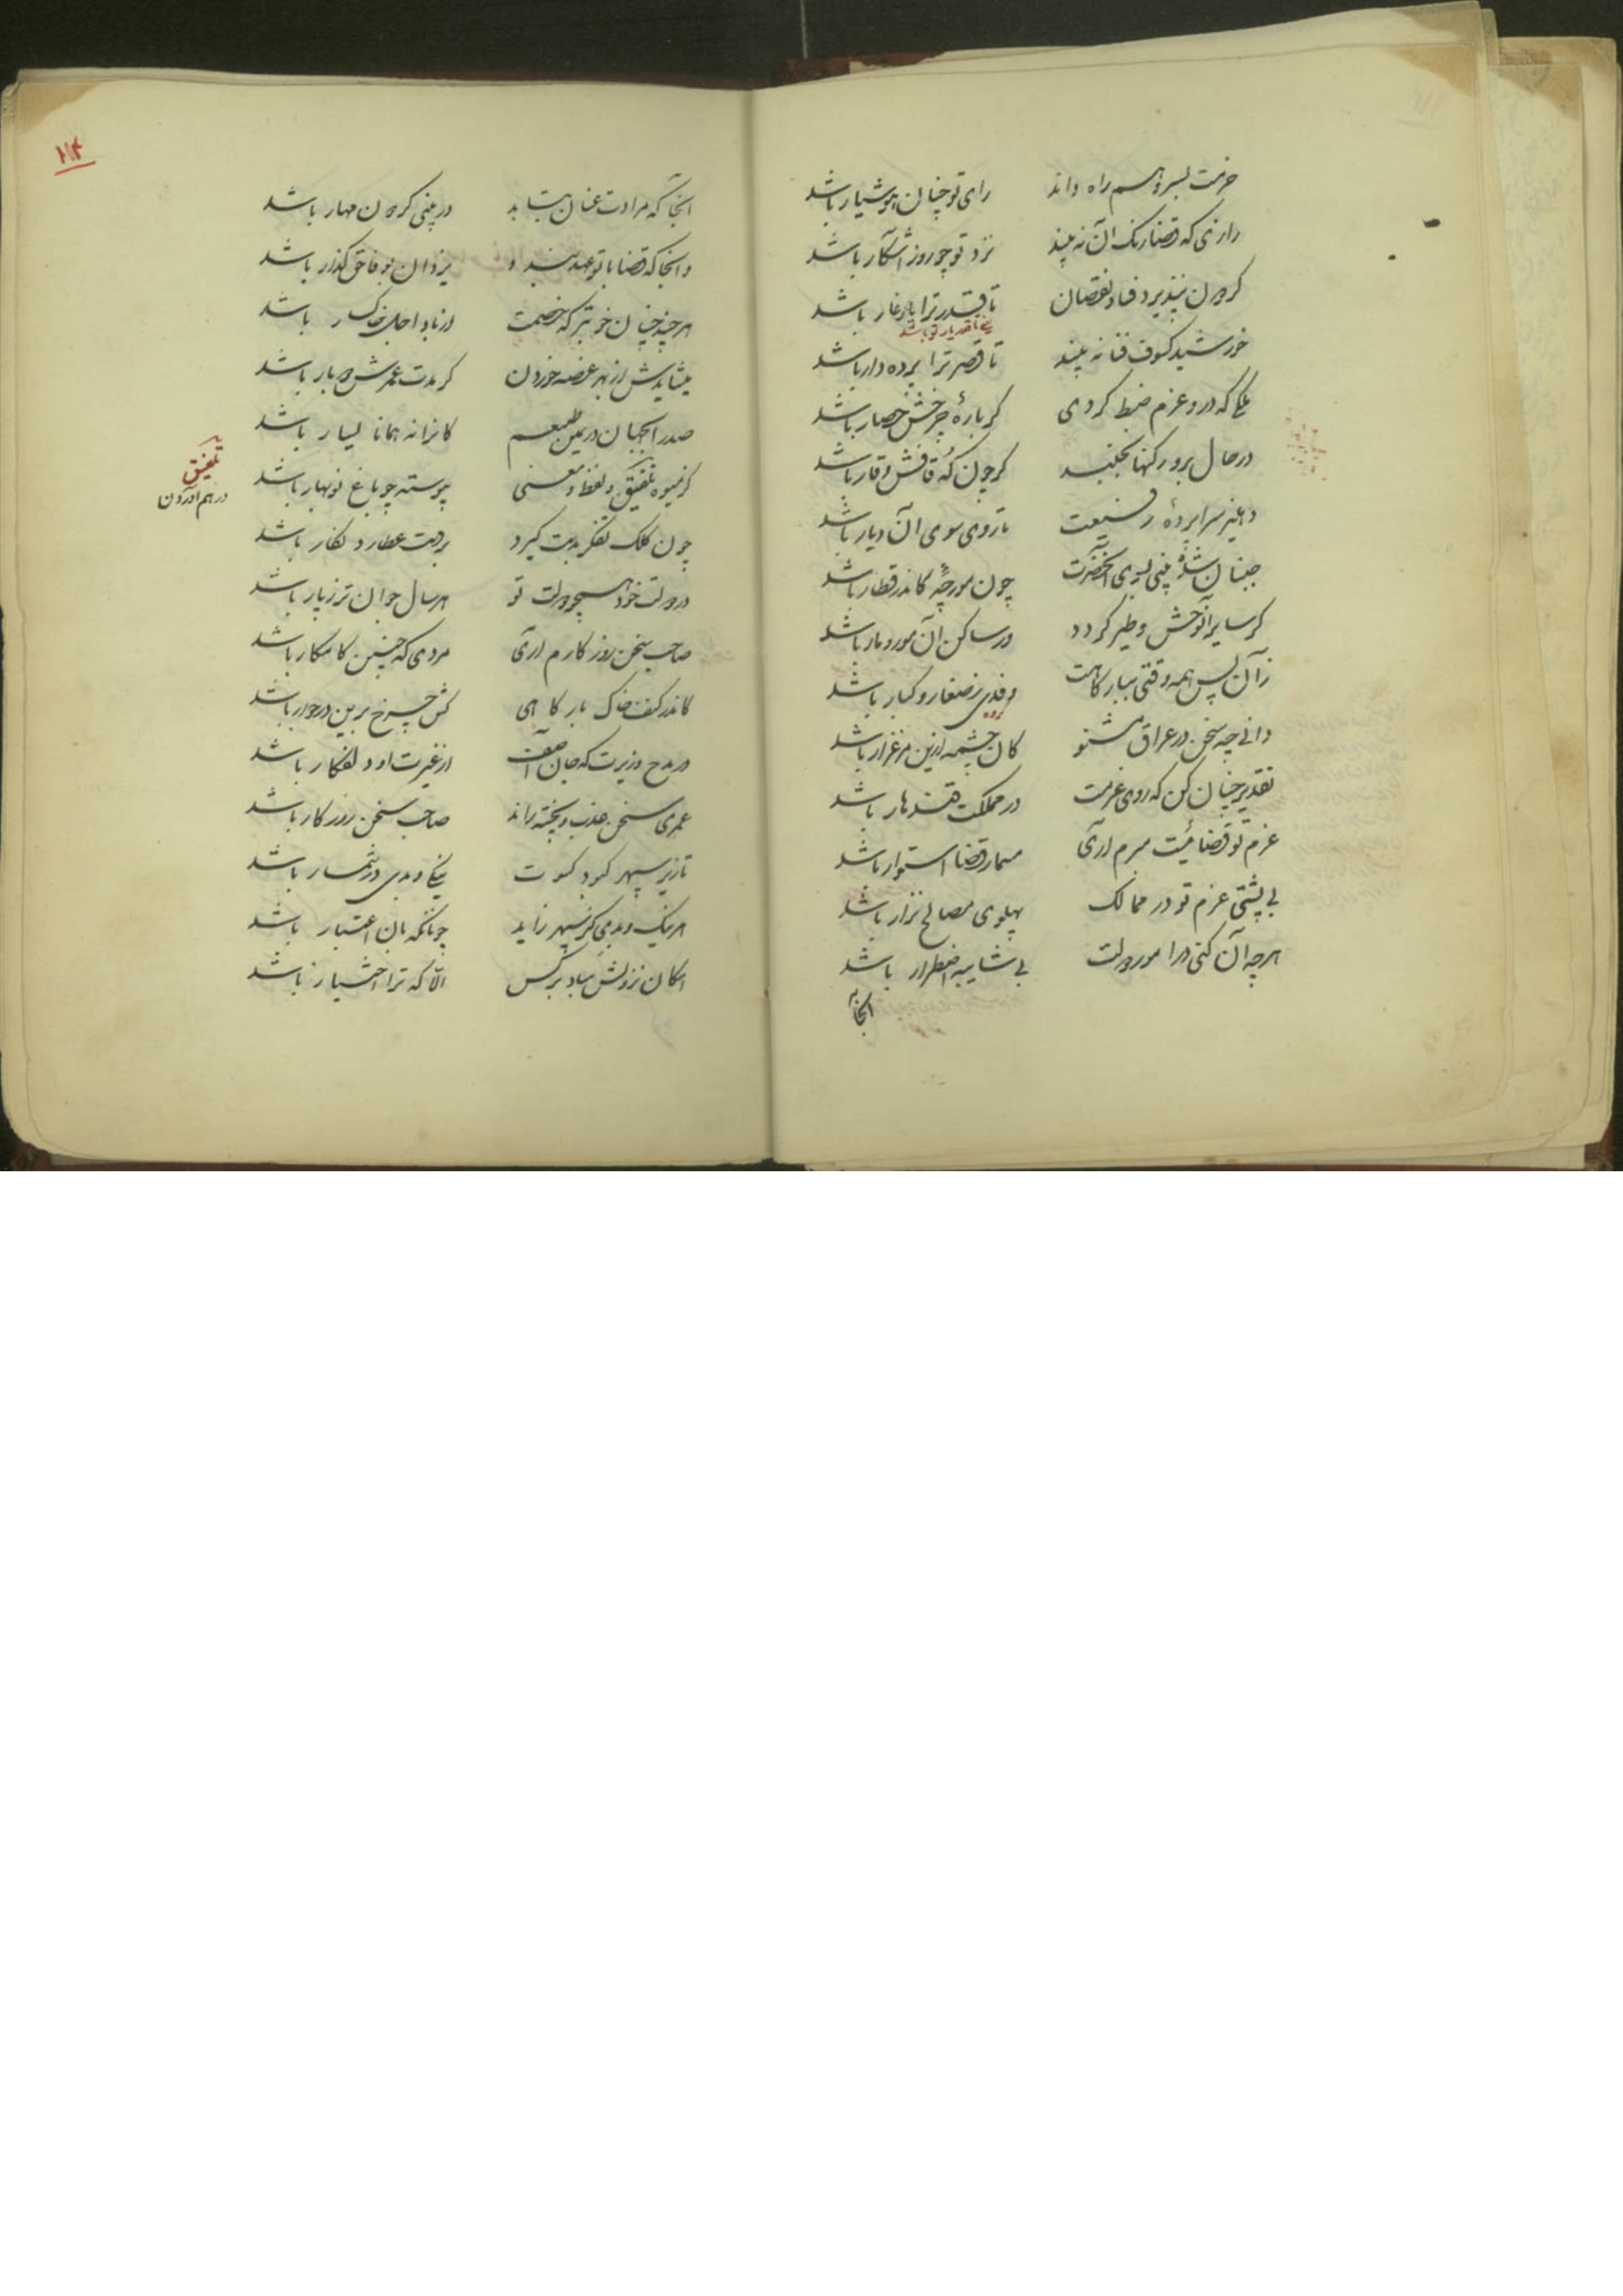 حزمت بسر وهم راه داند رای تو چنان هوشیار باشد
رازی که قضا رنک آن نه بیند نزد تو چو روز آشکار باشد
کردون نپذیرد فساد و نقصان تا قدر ترا یار غار باشد
یعنی تا قدر یار تو باشد
خورشید کسوف فنا نه بیند تا قصر ترا پرده دار باشد
ملکی که درو عزم ضبط کردی کر بارهٔ چرخش حصار باشد
در حال برو رکنها بجنبد کر چون که قافش وقار باشد
و اغیر سراپردهٔ رفیعت تا روی سوی آن دیار باشد
جنبان شدهٔ بینی بسوی آنحضرت چون مورچهٔ کاندر قطار باشد
کر سایر آن وحش و طیر کردد ور ساکن آن مور و مار باشد
زان پس همه وقتی ببارکاهت وفدی ز صغار و کبار باشد
دانی چه سخن در عراق مشنو کان چشمه ازین مرغزار باشد
تقدیر چنان کن که روی عزمت در مملکت قندهار باشد
عزم تو قضائیست مبرم آری مسمار قضا استوار باشد
بی پشتی عزم تو در ممالک پهلوی مصالح نزار باشد
هر چه آن کنی در امور دولت بی شایبه اضطرار باشد
آنجا که
۱۱۴
آنجا که مرادت عنان بتابد در بینی کردون مهار باشد
و آنجا که قضا با تو عهد بندد یزدان بوفا حق کذار باشد
هر چند چنان خوبتر که خصمت از باد اجل خاکسار باشد
میشایدش از بهر غصه خوردن کر مدت عمرش دو بار باشد
صدرا بجهان در یمین طبعم کانرا نه همانا یسار باشد
کز میوه تلفیق و لفظ و معنی پیوسته چو باغ نوبهار باشد
تلفیق
در هم آوردن
چون کلک تفکر بدست کیرد بر دست عطارد نکار باشد
در دولت خود همچو دولت تو هر سال جوان تر ز پار باشد
صاحب سخن روزکارم آری مردی که چنین کامکار باشد
کاندر کنف خاک بارکاهی کش چرخ برین در جوار باشد
در مدح وزیریت که جان آصف از غیرت او دلفکار باشد
عمری سخن عذب و پخته راند صاحب سخن روزکار باشد
تا زیر سپهر کبود کسوت نیکی و بدی در شمار باشد
هر نیک و بدی کز سپهر زاید چونانکه بآن اعتبار باشد
امکان نزولش مباد بر کس الا که ترا اختیار باشد